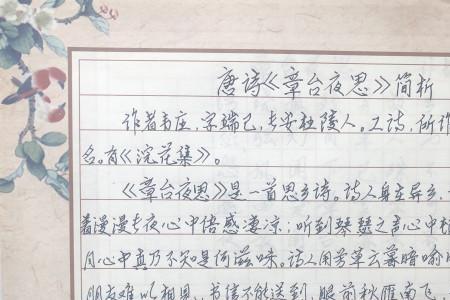 唐诗《章台夜思》简析
作者韦庄，字端己，长安杜陵人。工诗，所作
名。有《浣花集》。
《章台夜思》是一首思乡诗。诗人身在异乡，
着漫漫长夜心中倍感凄凉；听到琴瑟之声心中
月心中真乃不知是何滋味。诗人用芳草方暮暗喻
朋友难以相见，书信不能送到，眼前秋雁南飞，